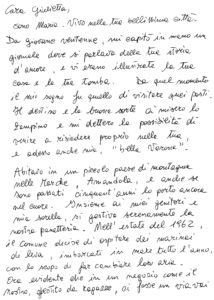 Cara Giulietta,
sono Maria. Vivo nella tua bellissima città.
Da giovane ventenne, mi capitò in mano un
giornale dove si parlava della tua storia
d'amore, e vi erano illustrate la tua
casa e la tua tomba. Da quel momento
il mio sogno fu quello di visitare quei posti.
Il destino e la buona sorte ci misero lo
zampino e mi dettero la possibilità di
venire a risiedere proprio nella tua
e adesso anche mia, "bella Verona".
Abitavo in un piccolo paese di montagna
nelle Marche, Amandola, e anche se
sono passati cinquant'anni lo porto ancora
nel cuore. Insieme ai miei genitori e
mia sorella, si gestiva serenamente la
nostra panetteria. Nell'estate del 1962,
il Comune decise di ospitare dei marinai
di leva, imbarcati in mare tutto l'anno,
con lo scopo di far cambiare loro aria.
Ora evidente che in un negozio come il
nostro, gestito da ragazze, ci fosse un via vai